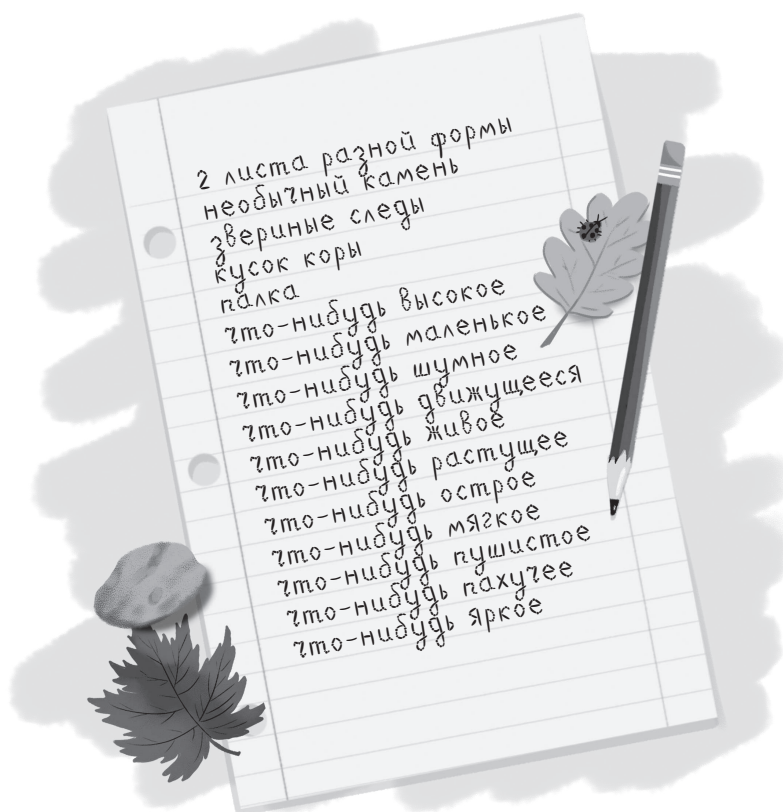 2 листа разной формы
необычный камень
звериные следы
кусок коры
палка
что-нибудь высокое
что-нибудь маленькое
что-нибудь шумное
что-нибудь движущееся
что-нибудь живое
что-нибудь растущее
что-нибудь острое
что-нибудь мягкое
что-нибудь пушистое
что-нибудь пахучее
что-нибудь яркое